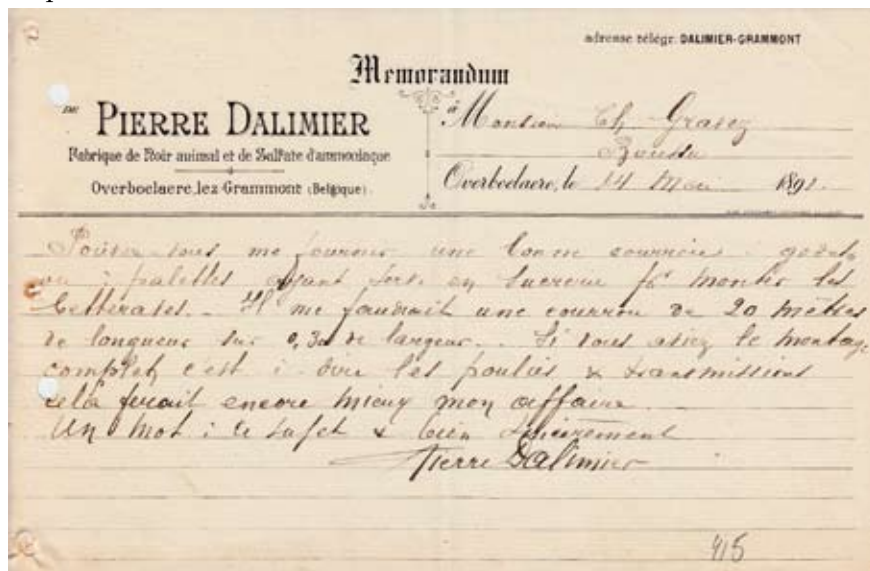 adresse télégr: DALIMIER-GRAMMONT
Memorandum
DE PIERRE DALIMIER
Fabrique de Noir animal et de Sulfate d'ammoniaque
Overboelaere, lez-Grammont (Belgique)
à Monsieur Ch. Gravez
Boussu
Overboelaere, le 14 Mai 1891.
vous me fournir une bonne courroie à godets
ou à palettes ayant servi en sucrerie pr monter les
betteraves. Il me faudrait une courroie de 20 mètres
de longueur sur 0,30 de largeur. Si vous aviez le montage
complet, c'est à dire les poulies & transmissions
cela ferait encore mieux mon affaire.
Un mot à ce sujet & bien sincèrement
Pierre Dalimier
415